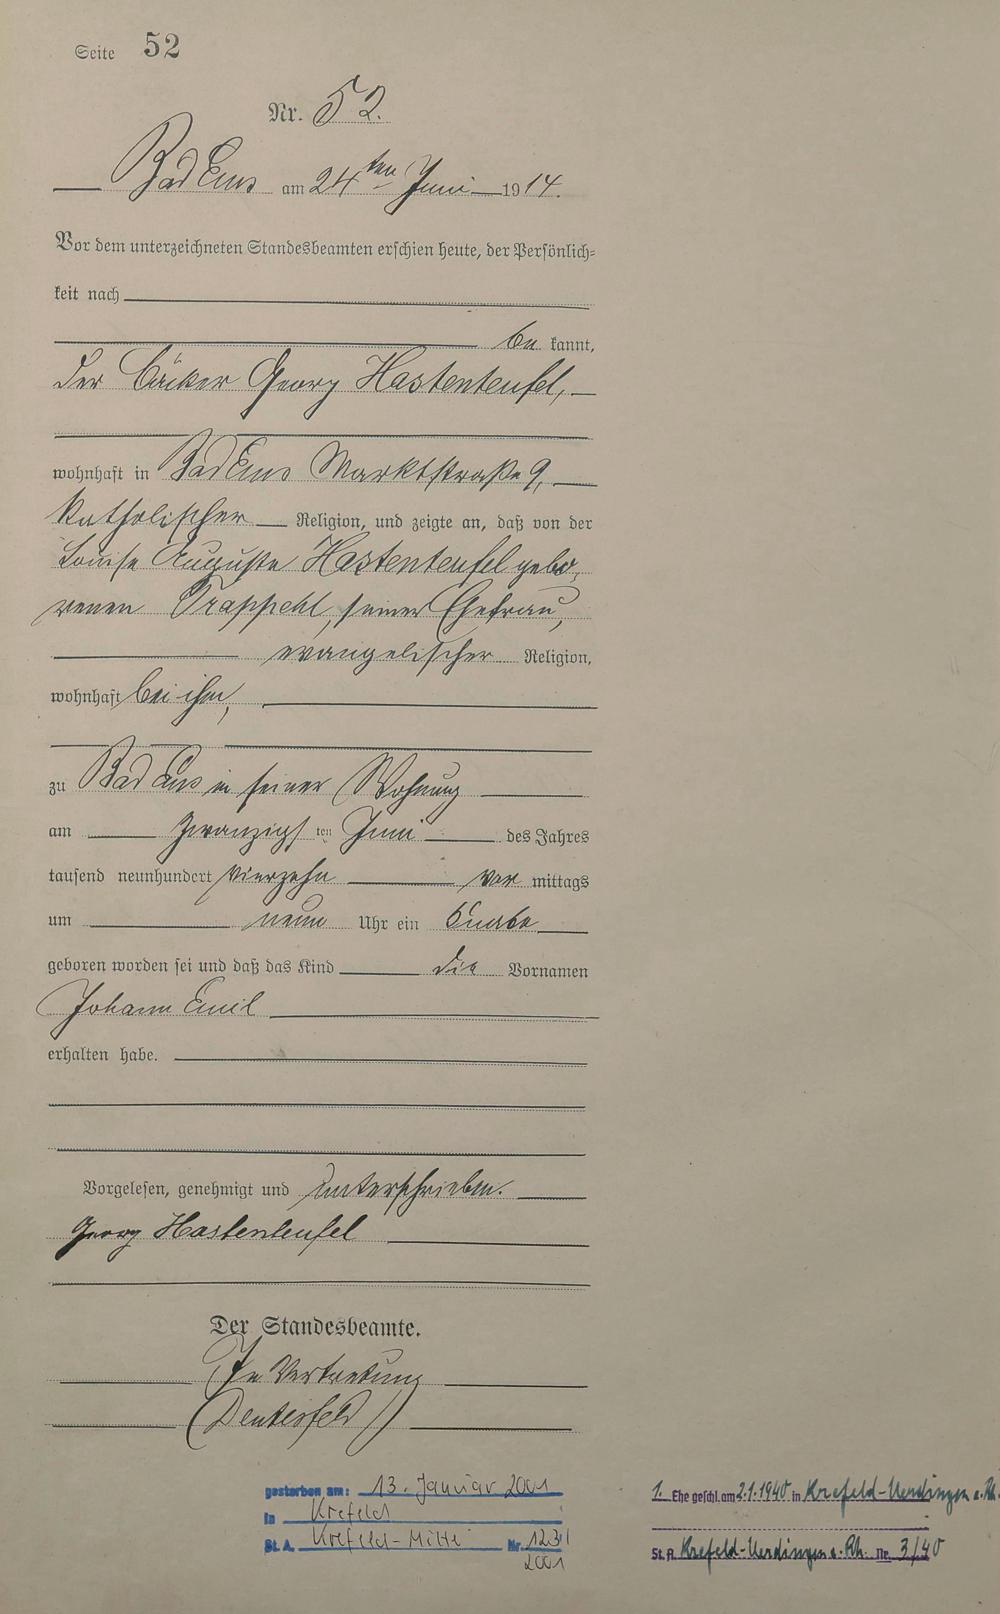 Seite 52
Nr. 52.
Bad Ems am 24ten Juni 1914.
Vor dem unterzeichneten Standesbeamten erschien heute, der Persönlich-
keit nach
be kannt,
der Bäcker Georg Hastenteufel,
wohnhaft in Bad Ems Marktstraße 9,
katholischer Religion, und zeigte an, daß von der
Louise Auguste Hastenteufel gebo-
renen Trappehl, seiner Ehefrau,
evangelischer Religion,
wohnhaft bei ihm,
zu Bad Ems in seiner Wohnung
am zwanzigsten Juni des Jahres
tausend neunhundert vierzehn vor mittags
um neun Uhr ein Knabe
geboren worden sei und daß das Kind die Vornamen
Johann Emil
erhalten habe.
Vorgelesen, genehmigt und unterschrieben.
Georg Hastenteufel
Der Standesbeamte.
In Vertretung
gestorben am: 13. Januar 2001
in Krefeld
St. A. Krefeld-Mitte Nr. 123/
2001
1. Ehe geschl. am 2.1.1940 in Krefeld-Uerdingen a. Rh.
St. A. Krefeld-Uerdingen a. Rh. Nr. 3/40